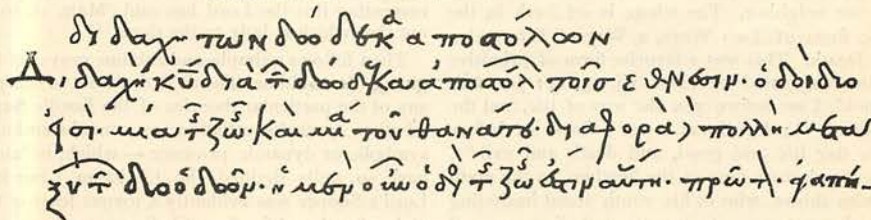 διδαχὴ τῶν δώδεκα ἀποστόλων
Διδαχὴ κ̅υ̅ διὰ τῶν δώδεκα ἀποστόλων τοῖς ἔθνεσιν· ὁδοὶ δύο
εἰσί· μία τῆς ζωῆς· καὶ μία τοῦ θανάτου· διαφορὰ δὲ πολλὴ μετα
ξὺ τῶν δύο ὁδῶν· ἡ μὲν οὖν ὁδὸς τῆς ζωῆς ἐστιν αὕτη· πρῶτον· ἀγαπή-